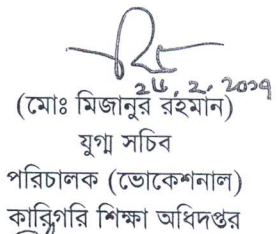 26.2.2019
(মোঃ মিজানুর রহমান)
যুগ্ম সচিব
পরিচালক (ভোকেশনাল)
কারিগরি শিক্ষা অধিদপ্তর